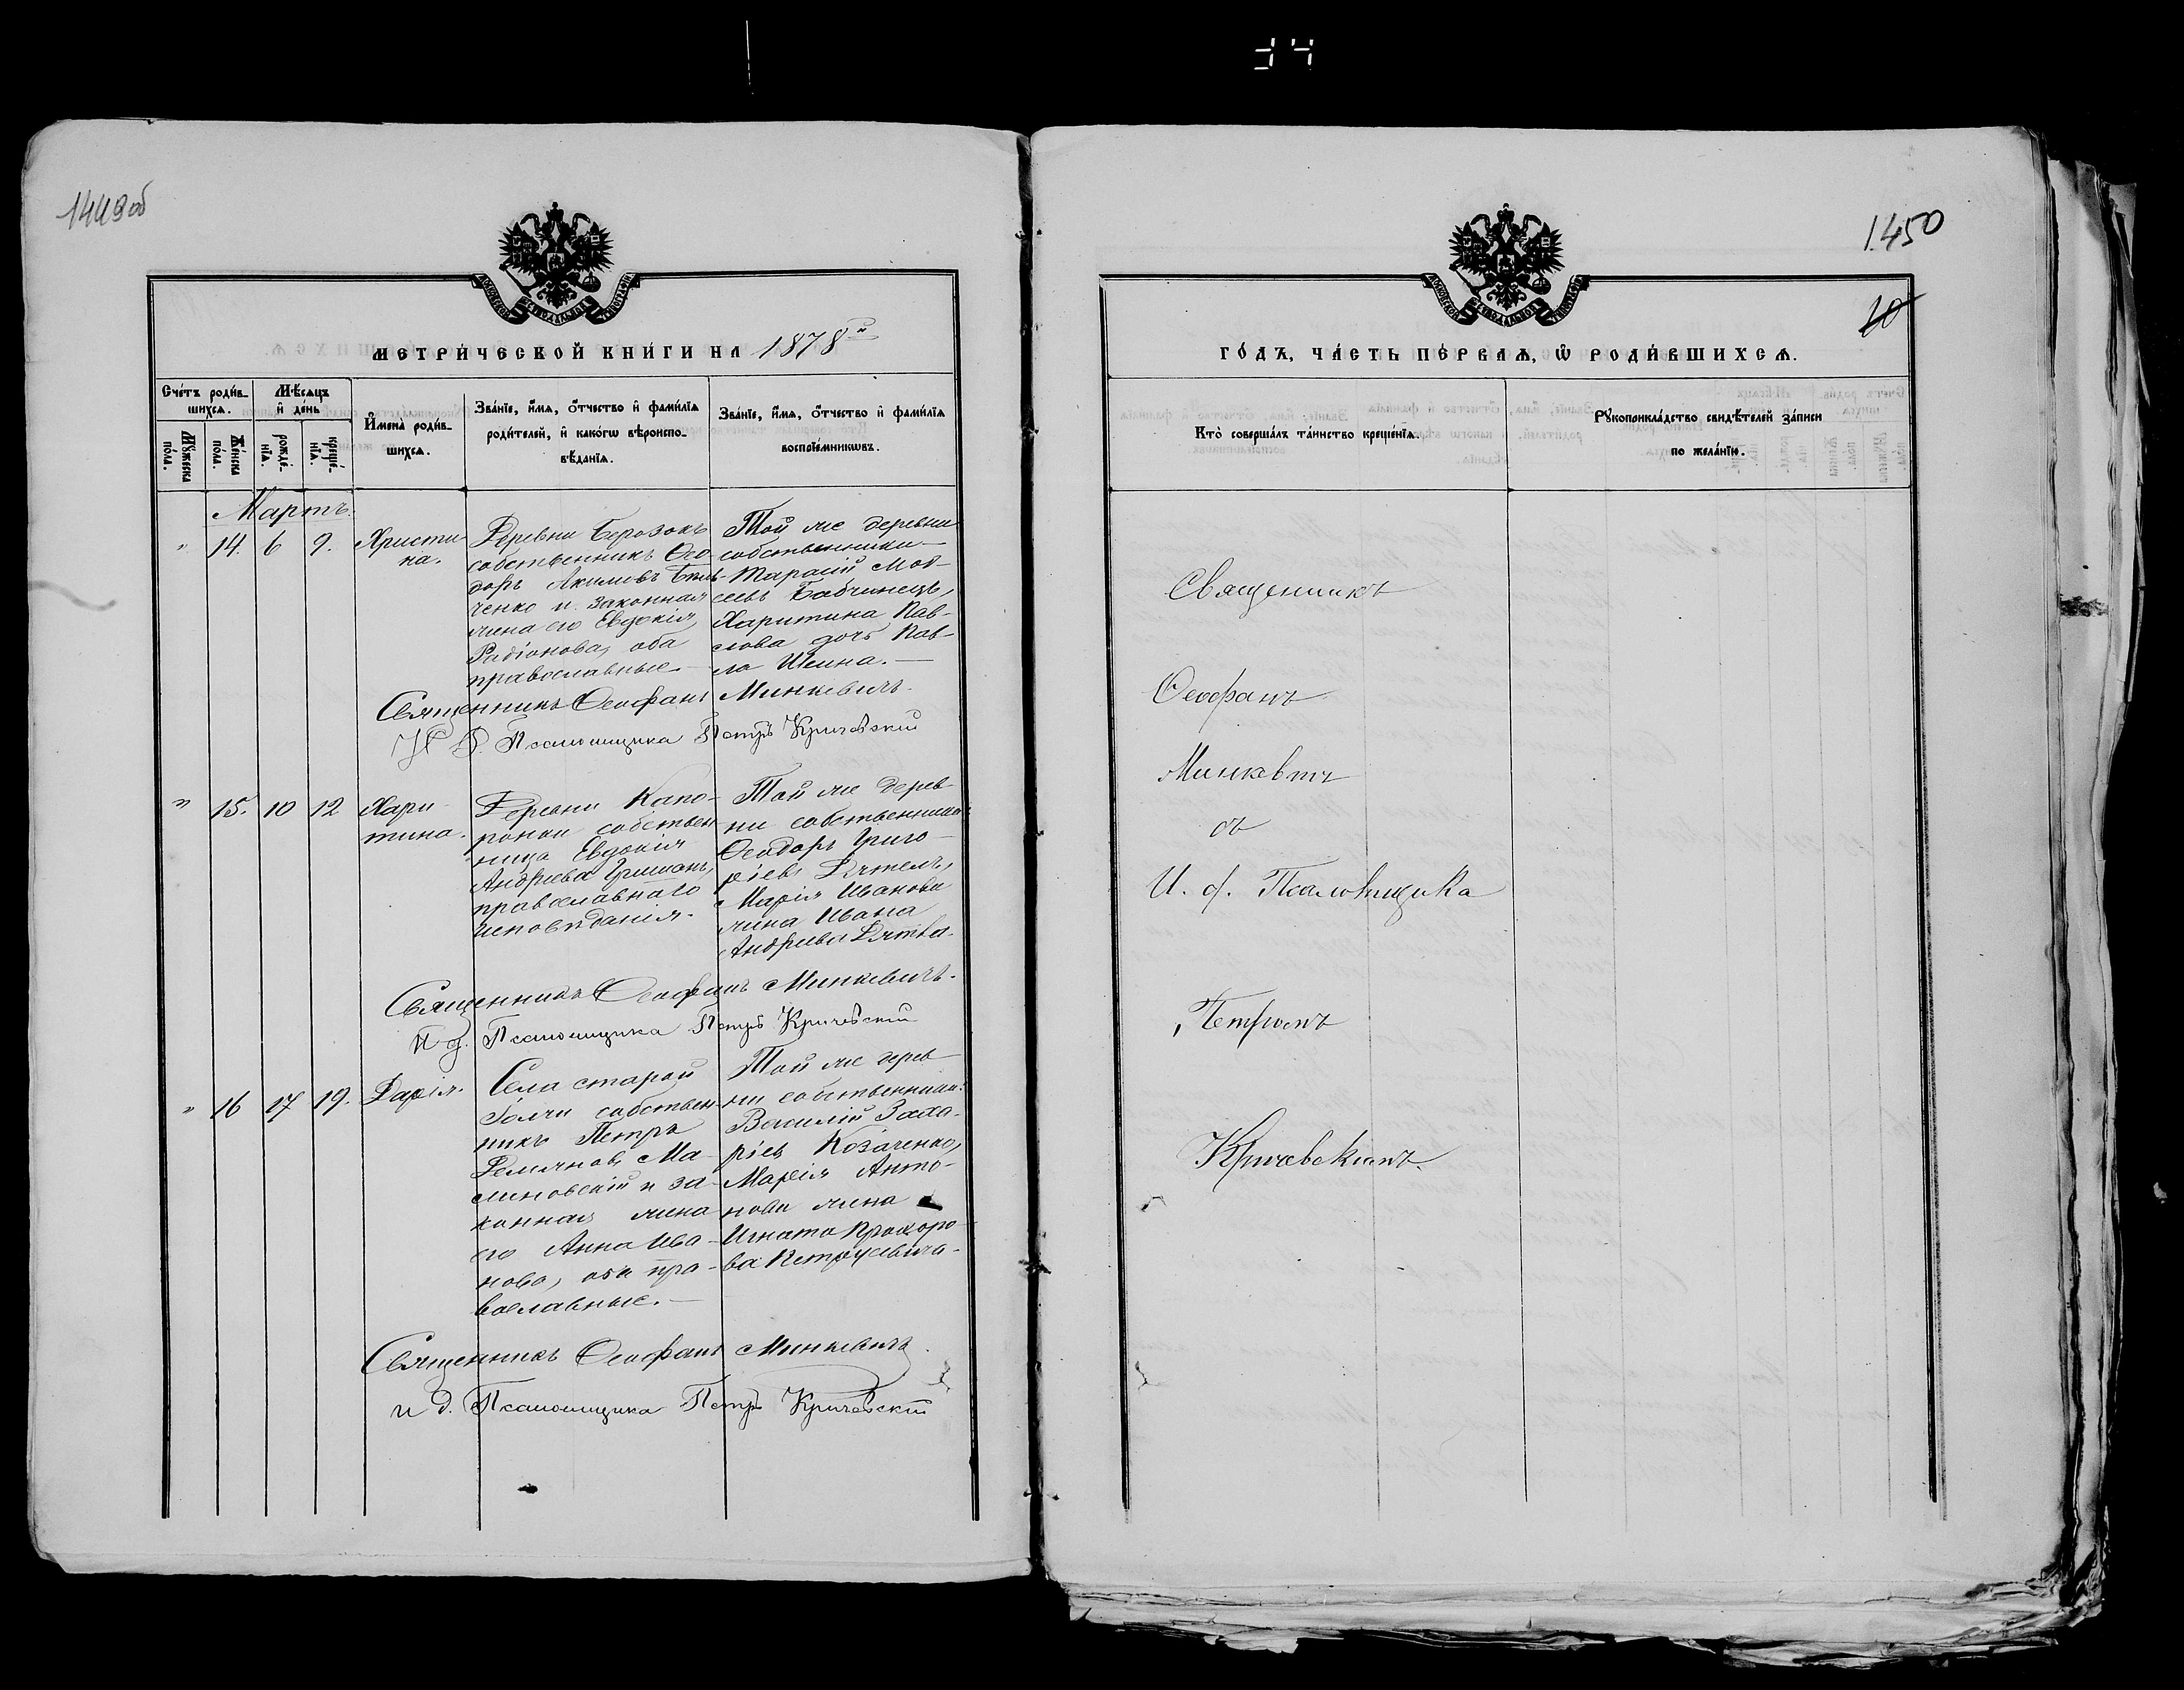 1449об
МЕТРИ́ЧЕСКОЙ КНИ́ГИ НА 1878й
Сче́тъ роди́в-
шихсѧ.
Мѣ́сѧцъ
и҆ де́нь
И҆мена̀ роди́в-
шихсѧ.
Зва́нїе, и҆́мѧ, ѻ҆́тчество и҆ фами́лїѧ
роди́телей, и҆ како́гѡ вѣроиспо-
вѣ́данїѧ.
Зва́нїе, и҆́мѧ, ѻ҆́тчество и҆ фами́лїѧ
воспрїе́мникѡвъ.
Мꙋ́жеска
по́ла.
Же́нска
по́ла.
рожде́-
нїѧ.
креще́-
нїѧ.
Мартъ.
" 14. 6 9.
Христи
на.
Деревни Берозокъ
собственникъ Ѳео-
доръ Акимовъ
ченко и законная
жена его Евдокія
Радіонова, оба
православные.
Той же деревни
собственники —
Тарасій Мой-
сеевъ Бабчинецъ,
Харитина Пав-
лова дочь Пав-
ла Шеина. —
Священникъ Ѳеофанъ Минкевичъ.
И д. Псаломщика Петръ Кричевскій
" 15. 10 12
Хари
тина.
Деревни Капо-
ронки собствен
ница Евдокія
Андреева Гришанъ,
православнаго
исповѣданія.
Той же дерев-
ни собственники:
Ѳеодоръ Григо-
ріевъ Дятелъ,
Марія Иванова
жена Ивана
Андреева Дятла.
Священникъ Ѳеофанъ Минкевичъ.
И д. Псаломщика Петръ Кричевскій
" 16 17 19.
Дарія.
Села старой
Голчи собствен-
никъ Петръ
Демяновъ Ма-
линовскій и за-
конная жена
его Анна Ива-
нова, оба пра-
вославные. —
Той же дерев-
ни собственники:
Василій Заха-
ріевъ Козаченко,
Марія Анто-
нова жена
Игната Прохоро-
ва Петрусевича.
Священникъ Ѳеофанъ Минкевичъ.
и д. Псаломщика Петръ Кричевскій
1450
10
ГО́ДЪ, ЧА́СТЬ ПЕ́РВАѦ, Ѡ҆ РОДИ́ВШИХСѦ.
Кто̀ соверша́лъ та́инство креще́нїѧ.
Рꙋкоприкла́дство свидѣ́телей за́писи
по жела́нїю.
Священникъ
Ѳеофанъ
Минкевичъ
съ
И. д. Псаломщика
Петромъ
Кричевскимъ.